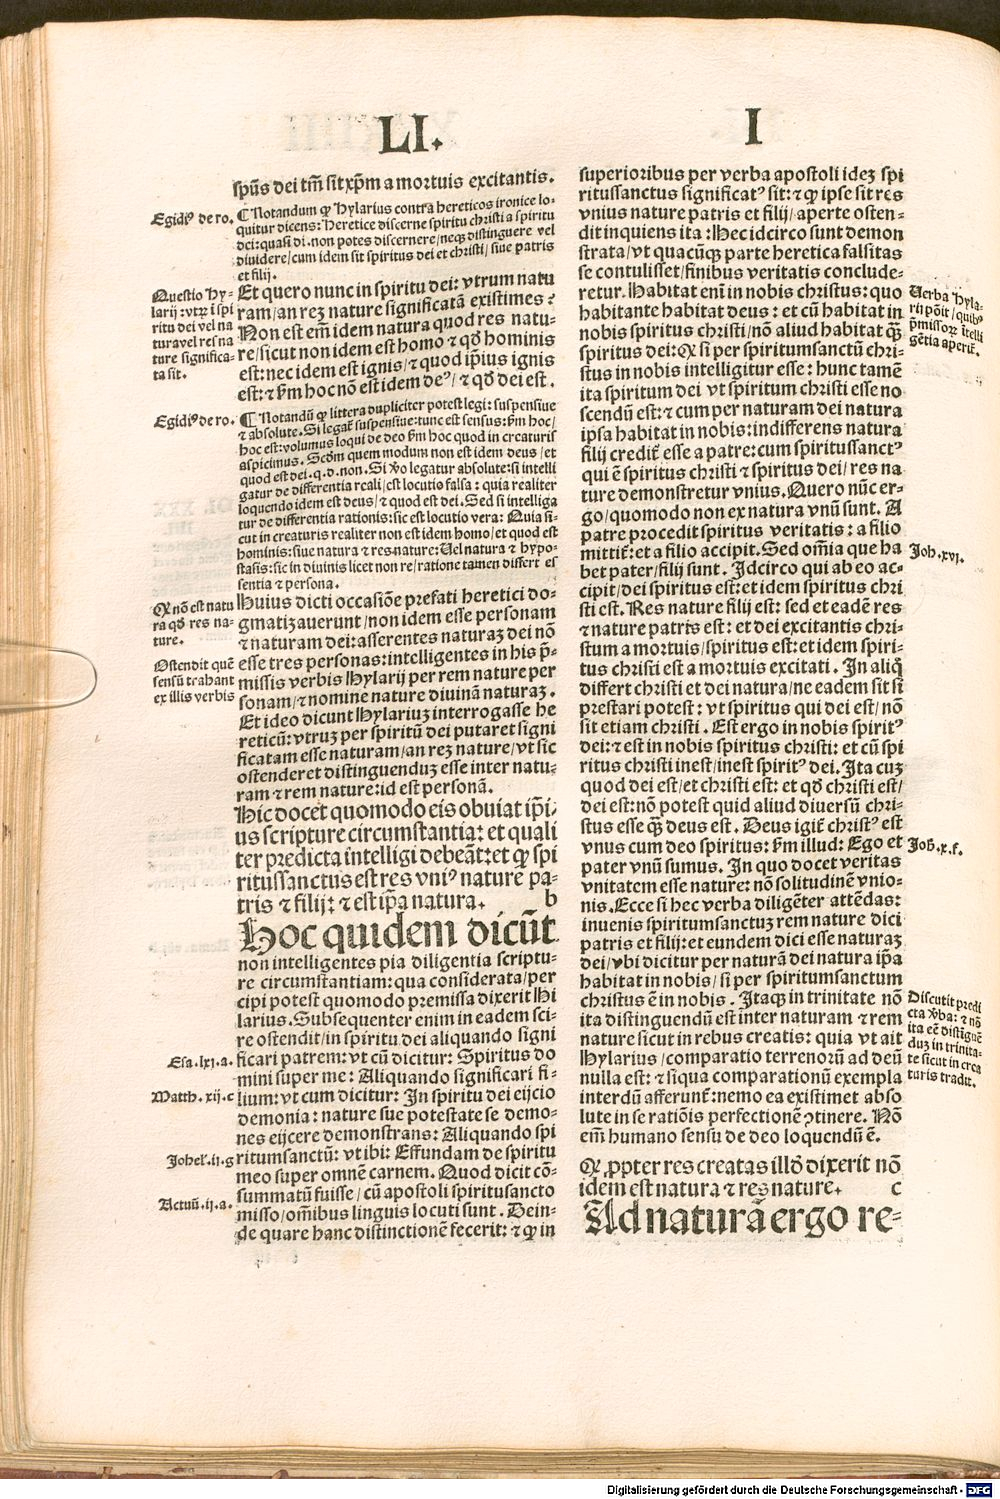 LI.
I
spūs dei tm̄ sit xp̄m a mortuis excitantis.
Egidiꝰ de ro.
¶ Notandum ꝙ Hylarius contra hereticos ironice lo-
quitur dicens: Heretice discerne spiritu christi a spiritu
dei: quasi di. non potes discernere/neqꝫ distinguere vel
diuidere/cum idem sit spiritus dei et christi/ siue patris
et filij.
Questio Hy-
larij: vtrꝫ ī spi
ritu dei vel na
tura vel res na
ture significa-
ta sit.
Et quero nunc in spiritu dei: vtrum natu
ram/an reꝫ nature significatā existimes?
Non est em̄ idem natura quod res natu-
re/sicut non idem est homo ⁊ qd̄ hominis
est: nec idem est ignis/⁊ quod ip̄ius ignis
est: ⁊ ẜm hoc nō est idem deꝰ/ ⁊ qd̄ dei est.
Egidiꝰ de ro.
¶ Notandū ꝙ littera dupliciter potest legi: suspensiue
⁊ absolute. Si legat̄ suspensiue: tunc est sensus: ẜm hoc/
hoc est: volumus loqui de deo ẜm hoc quod in creaturis
aspicimus. Scd̄m quem modum non est idem deus /et
quod est dei. q. d. non. Si v̄o legatur absolute: si intelli
gatur de differentia reali/est locutio falsa: quia realiter
loquendo idem est deus/⁊ quod est dei. Sed si intelliga
tur de differentia rationis: sic est locutio vera: Quia si-
cut in creaturis realiter non est idem homo/et quod est
hominis: siue natura ⁊ res nature: Uel natura ⁊ hypo-
stasis: sic in diuinis licet non re/ratione tamen differt es
sentia ⁊ persona.
Ꝙ nō est natu
ra qd̄ res na-
ture.
Ostendit quē
sensū trahant
ex illis verbis
Huius dicti occasiōe prefati heretici do-
gmatizauerunt/non idem esse personam
⁊ naturam dei: asserentes naturaꝫ dei nō
esse tres personas: intelligentes in his p̄-
missis verbis Hylarij per rem nature per
sonam/⁊ nomine nature diuinā naturaꝫ.
Et ideo dicunt Hylariuꝫ interrogasse he
reticū: vtruꝫ per spiritū dei putaret signi
ficatam esse naturam/an reꝫ nature/vt sic
ostenderet distinguenduꝫ esse inter natu-
ram ⁊ rem nature: id est personā.
Hic docet quomodo eis obuiat ip̄i/
us scripture circumstantia: et quali
ter predicta intelligi debeāt: et ꝙ spi
ritussanctus est res vniꝰ nature pa-
tris ⁊ filij: ⁊ est ip̄a natura. b
Hoc quidem dicūt
non intelligentes pia diligentia scriptu-
re circumstantiam: qua considerata/per
cipi potest quomodo premissa dixerit Hi
larius. Subsequenter enim in eadem sci-
re ostendit/in spiritu dei aliquando signi
Esa. lxj. a.
ficari patrem: vt cū dicitur: Spiritus do
mini super me: Aliquando significari fi-
Matth. xij. c
lium: vt cum dicitur: In spiritu dei eijcio
demonia: nature sue potestate se demo-
nes eijcere demonstrans: Aliquando spi
Johel̄. ij. g
ritumsanctū: vt ibi: Effundam de spiritu
meo super omnē carnem. Quod dicit cō-
Actuū. ij. a.
summatū fuisse/ cū apostoli spiritusancto
misso/om̄ibus linguis locuti sunt. Dein-
de quare hanc distinctionē fecerit: ⁊ ꝙ in
superioribus per verba apostoli ideꝫ spi
ritussanctus significatꝰ sit: ⁊ ꝙ ipse sit res
vnius nature patris et filij/aperte osten-
dit inquiens ita: Hec idcirco sunt demon
strata/vt quacūqꝫ parte heretica falsitas
se contulisset/finibus veritatis conclude-
Uerba Hyla-
rij pōit/quibꝰ
p̄missorꝫ ītelli
gētia aperit̄.
retur. Habitat enī in nobis christus: quo
habitante habitat deus: et cū habitat in
nobis spiritus christi/nō aliud habitat q̄ꝫ
spiritus dei: Ꝙ si per spiritumsanctū chri-
stus in nobis intelligitur esse: hunc tamē
ita spiritum dei vt spiritum christi esse no
scendū est: ⁊ cum per naturam dei natura
ipsa habitat in nobis: indifferens natura
filij credit̄ esse a patre: cum spiritussanctꝰ
qui ē spiritus christi ⁊ spiritus dei/res na
ture demonstretur vnius. Quero nūc er-
go/quomodo non ex natura vnū sunt. A
patre procedit spiritus veritatis: a filio
Joh. xvj.
mittit̄: et a filio accipit. Sed om̄ia que ha
bet pater/filij sunt. Idcirco qui ab eo ac-
cipit/dei spiritus est: et idem spiritus chri
sti est. Res nature filij est: sed et eadē res
⁊ nature patris est: et dei excitantis chri-
stum a mortuis/spiritus est: et idem spiri-
tus christi est a mortuis excitati. In aliq̄
differt christi et dei natura/ne eadem sit si
prestari potest: vt spiritus qui dei est/ nō
sit etiam christi. Est ergo in nobis spiritꝰ
dei: ⁊ est in nobis spiritus christi: et cū spi
ritus christi inest/inest spiritꝰ dei. Ita cuꝫ
quod dei est/et christi est: et qd̄ christi est/
dei est: nō potest quid aliud diuersū chri-
stus esse q̄ꝫ deus est. Deus igit̄ christꝰ est
Joh̄. x. f.
vnus cum deo spiritus: ẜm illud: Ego et
pater vnū sumus. In quo docet veritas
vnitatem esse nature: nō solitudinē vnio-
nis. Ecce si hec verba diligēter attēdas:
inuenis spiritumsanctuꝫ rem nature dici
patris et filij: et eundem dici esse naturaꝫ
dei/vbi dicitur per naturā dei natura ip̄a
habitat in nobis/ si per spiritumsanctum
Discutit predi
cta v̄ba: ⁊ nō
ita eē distiguē
duꝫ in trinita-
te sicut in crea
turis tradit.
christus ē in nobis. Itaqꝫ in trinitate nō
ita distinguendū est inter naturam ⁊ rem
nature sicut in rebus creatis: quia vt ait
Hylarius/comparatio terrenorū ad deū
nulla est: ⁊ siqua comparationū exempla
interdū afferunt̄: nemo ea existimet abso
lute in se ratiōis perfectionē ꝯtinere. Nō
em̄ humano sensu de deo loquendū ē.
Ꝙ ꝓpter res creatas illd̄ dixerit nō
idem est natura ⁊ res nature. c
Ad naturā ergo re-
Digitalisierung gefördert durch die Deutsche Forschungsgemeinschaft - DFG